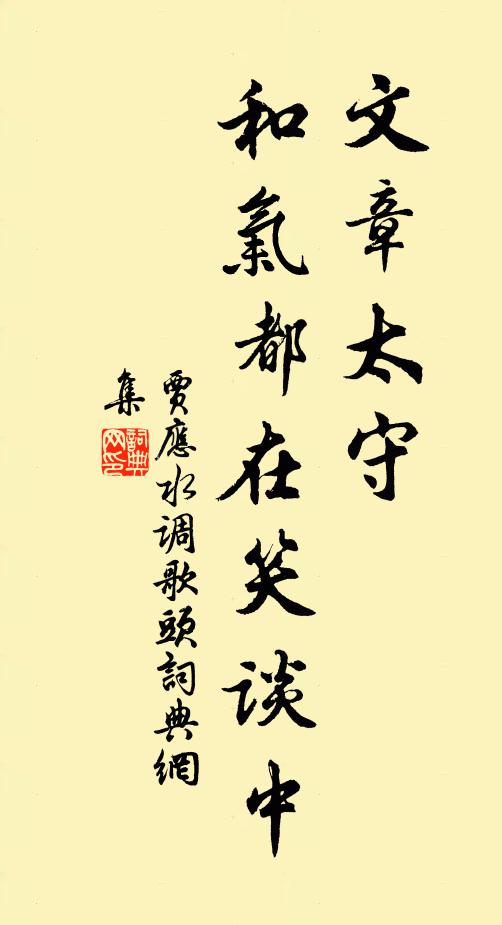 文章太守
和氣都在笑談中
賈應水调歌頭詞典網
集
詞典网印